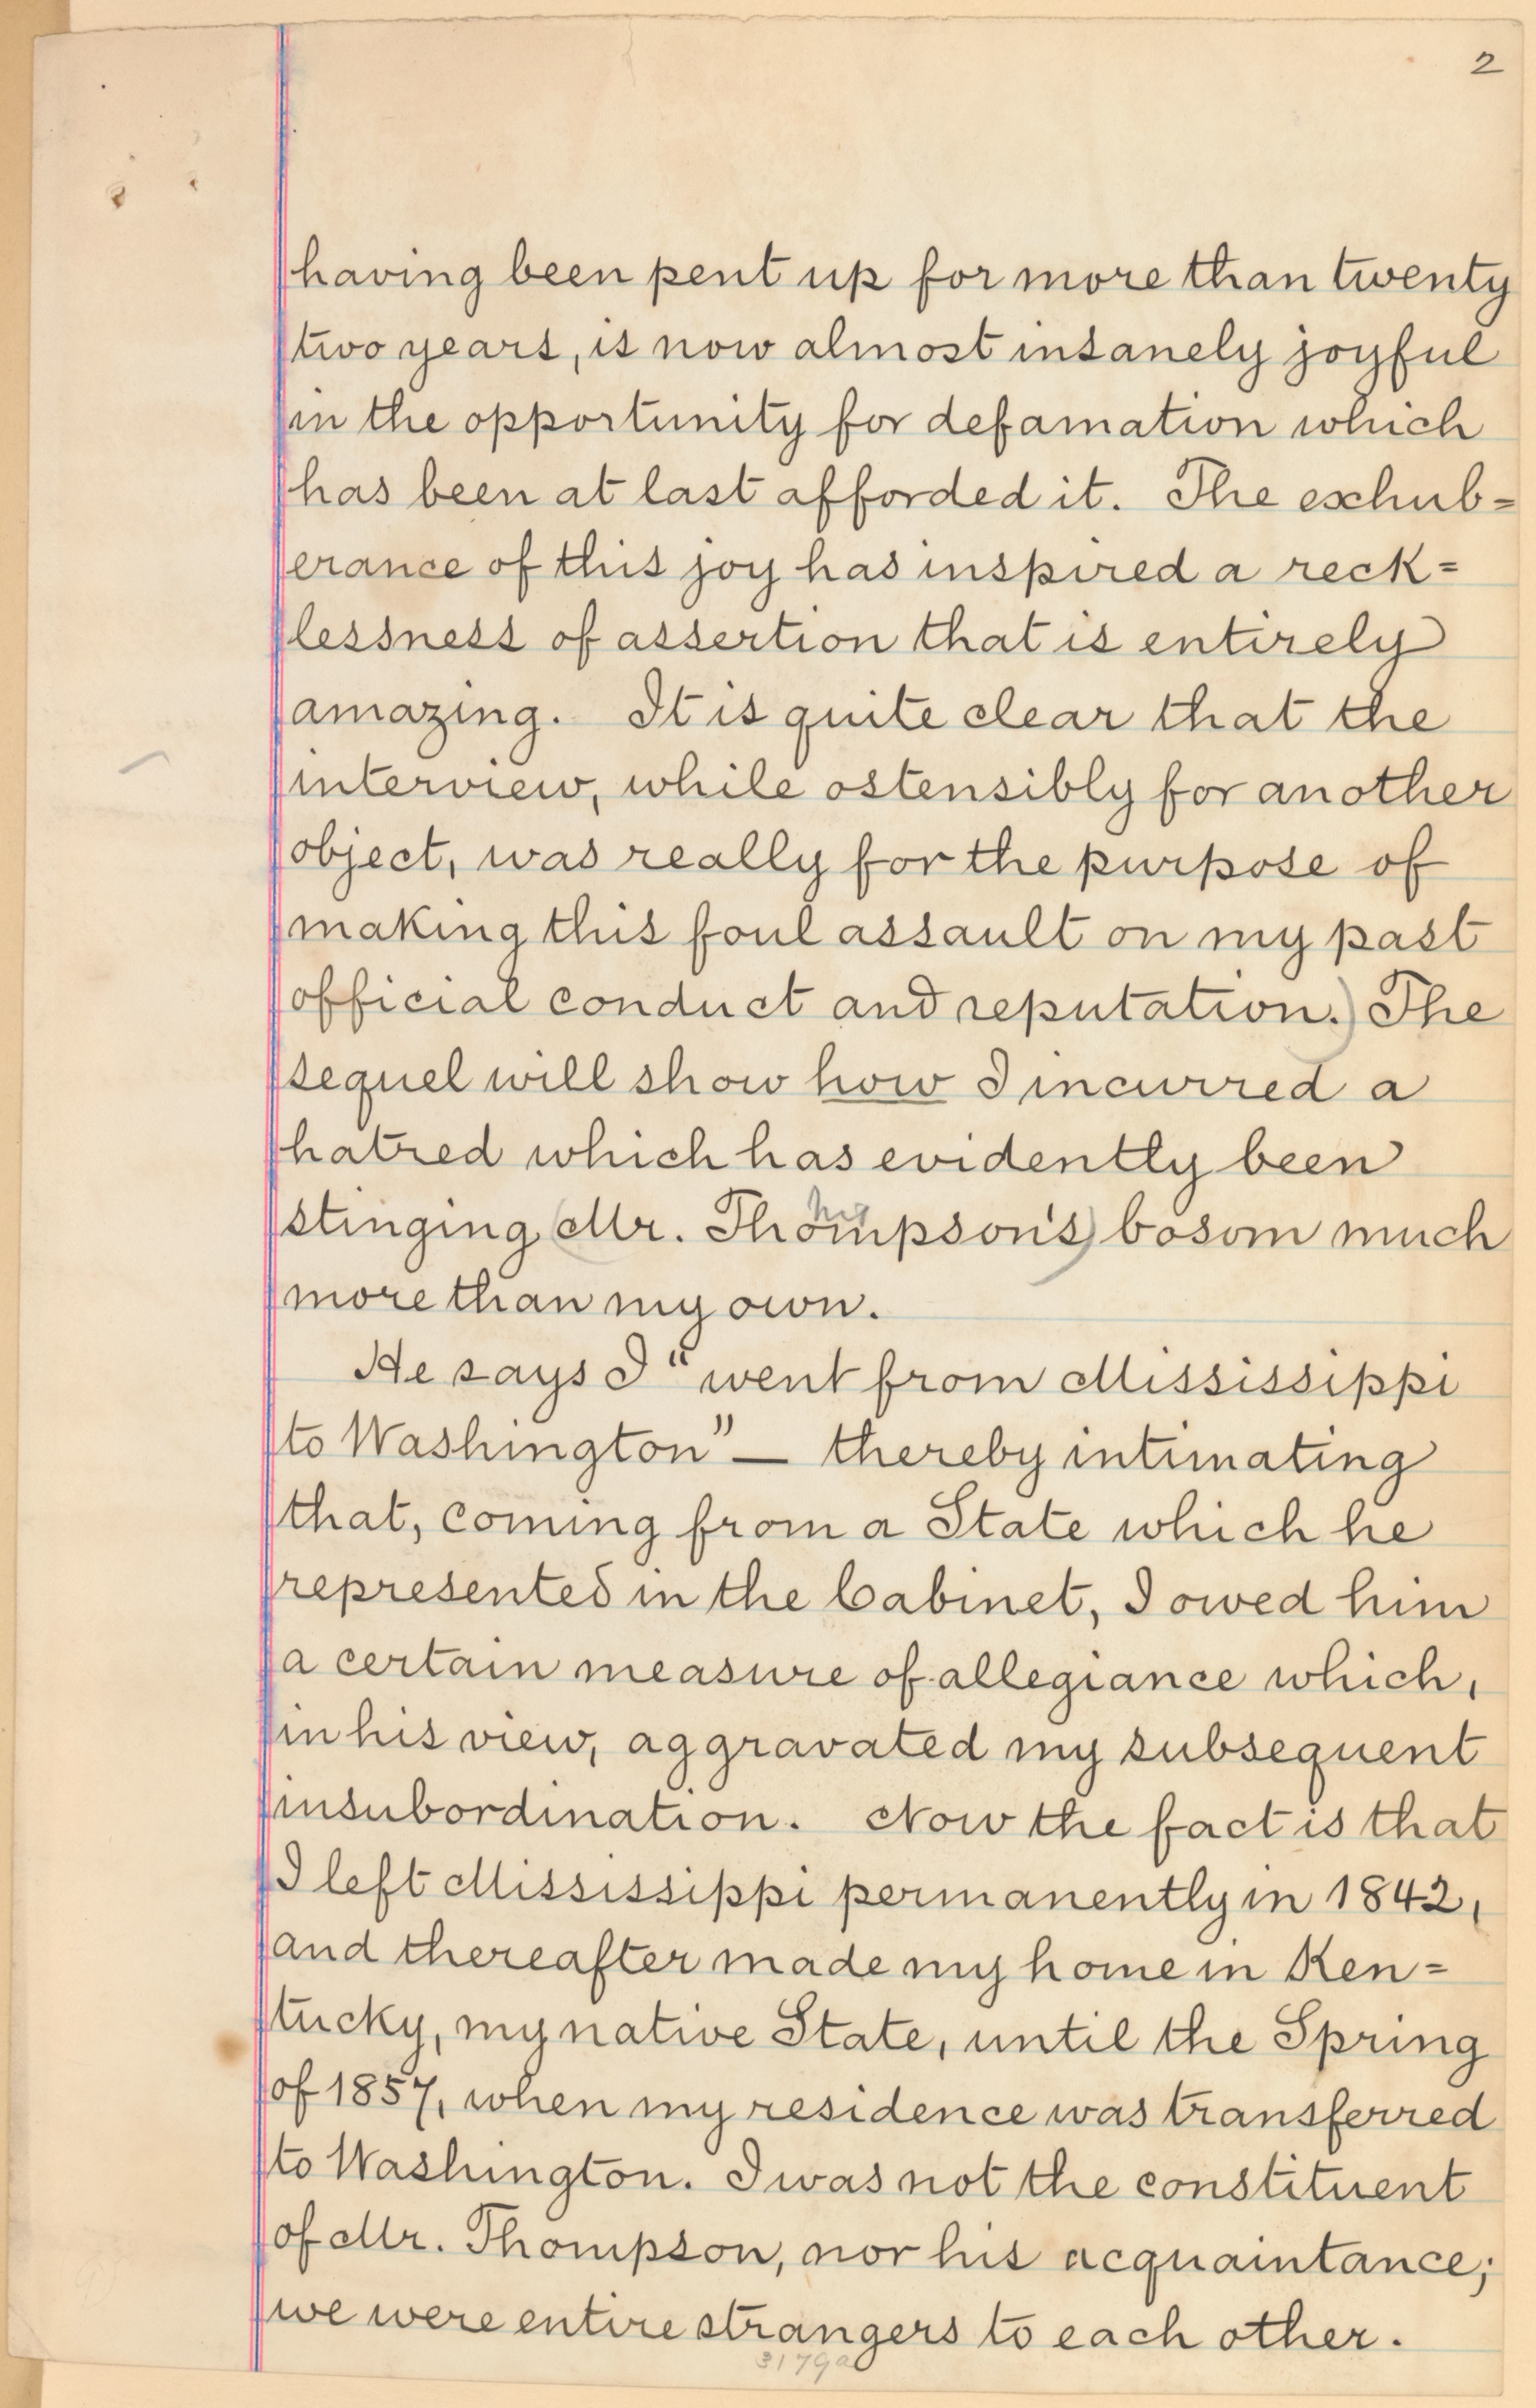 2
having been pent up for more than twenty
two years, is now almost insanely joyful
in the opportunity for defamation which
has been at last afforded it. The exhub=
erance of this joy has inspired a reck=
lessness of assertion that is entirely
amazing. It is quite clear that the
interview, while ostensibly for another
object, was really for the purpose of
making this foul assault on my past
official conduct and reputation.) The
sequel will show how I incurred a
hatred which has evidently been
his
stinging (Mr. Thompson's) bosom much
more than my own.
He says I "went from Mississippi
to Washington" — thereby intimating
that, coming from a State which he
represented in the Cabinet, I owed him
a certain measure of allegiance which,
in his view, aggravated my subsequent
insubordination. Now the fact is that
I left Mississippi permanently in 1842,
and thereafter made my home in Ken=
tucky, my native State, until the Spring
of 1857, when my residence was transferred
to Washington. I was not the constituent
of Mr. Thompson, nor his acquaintance;
we were entire strangers to each other.
3179a